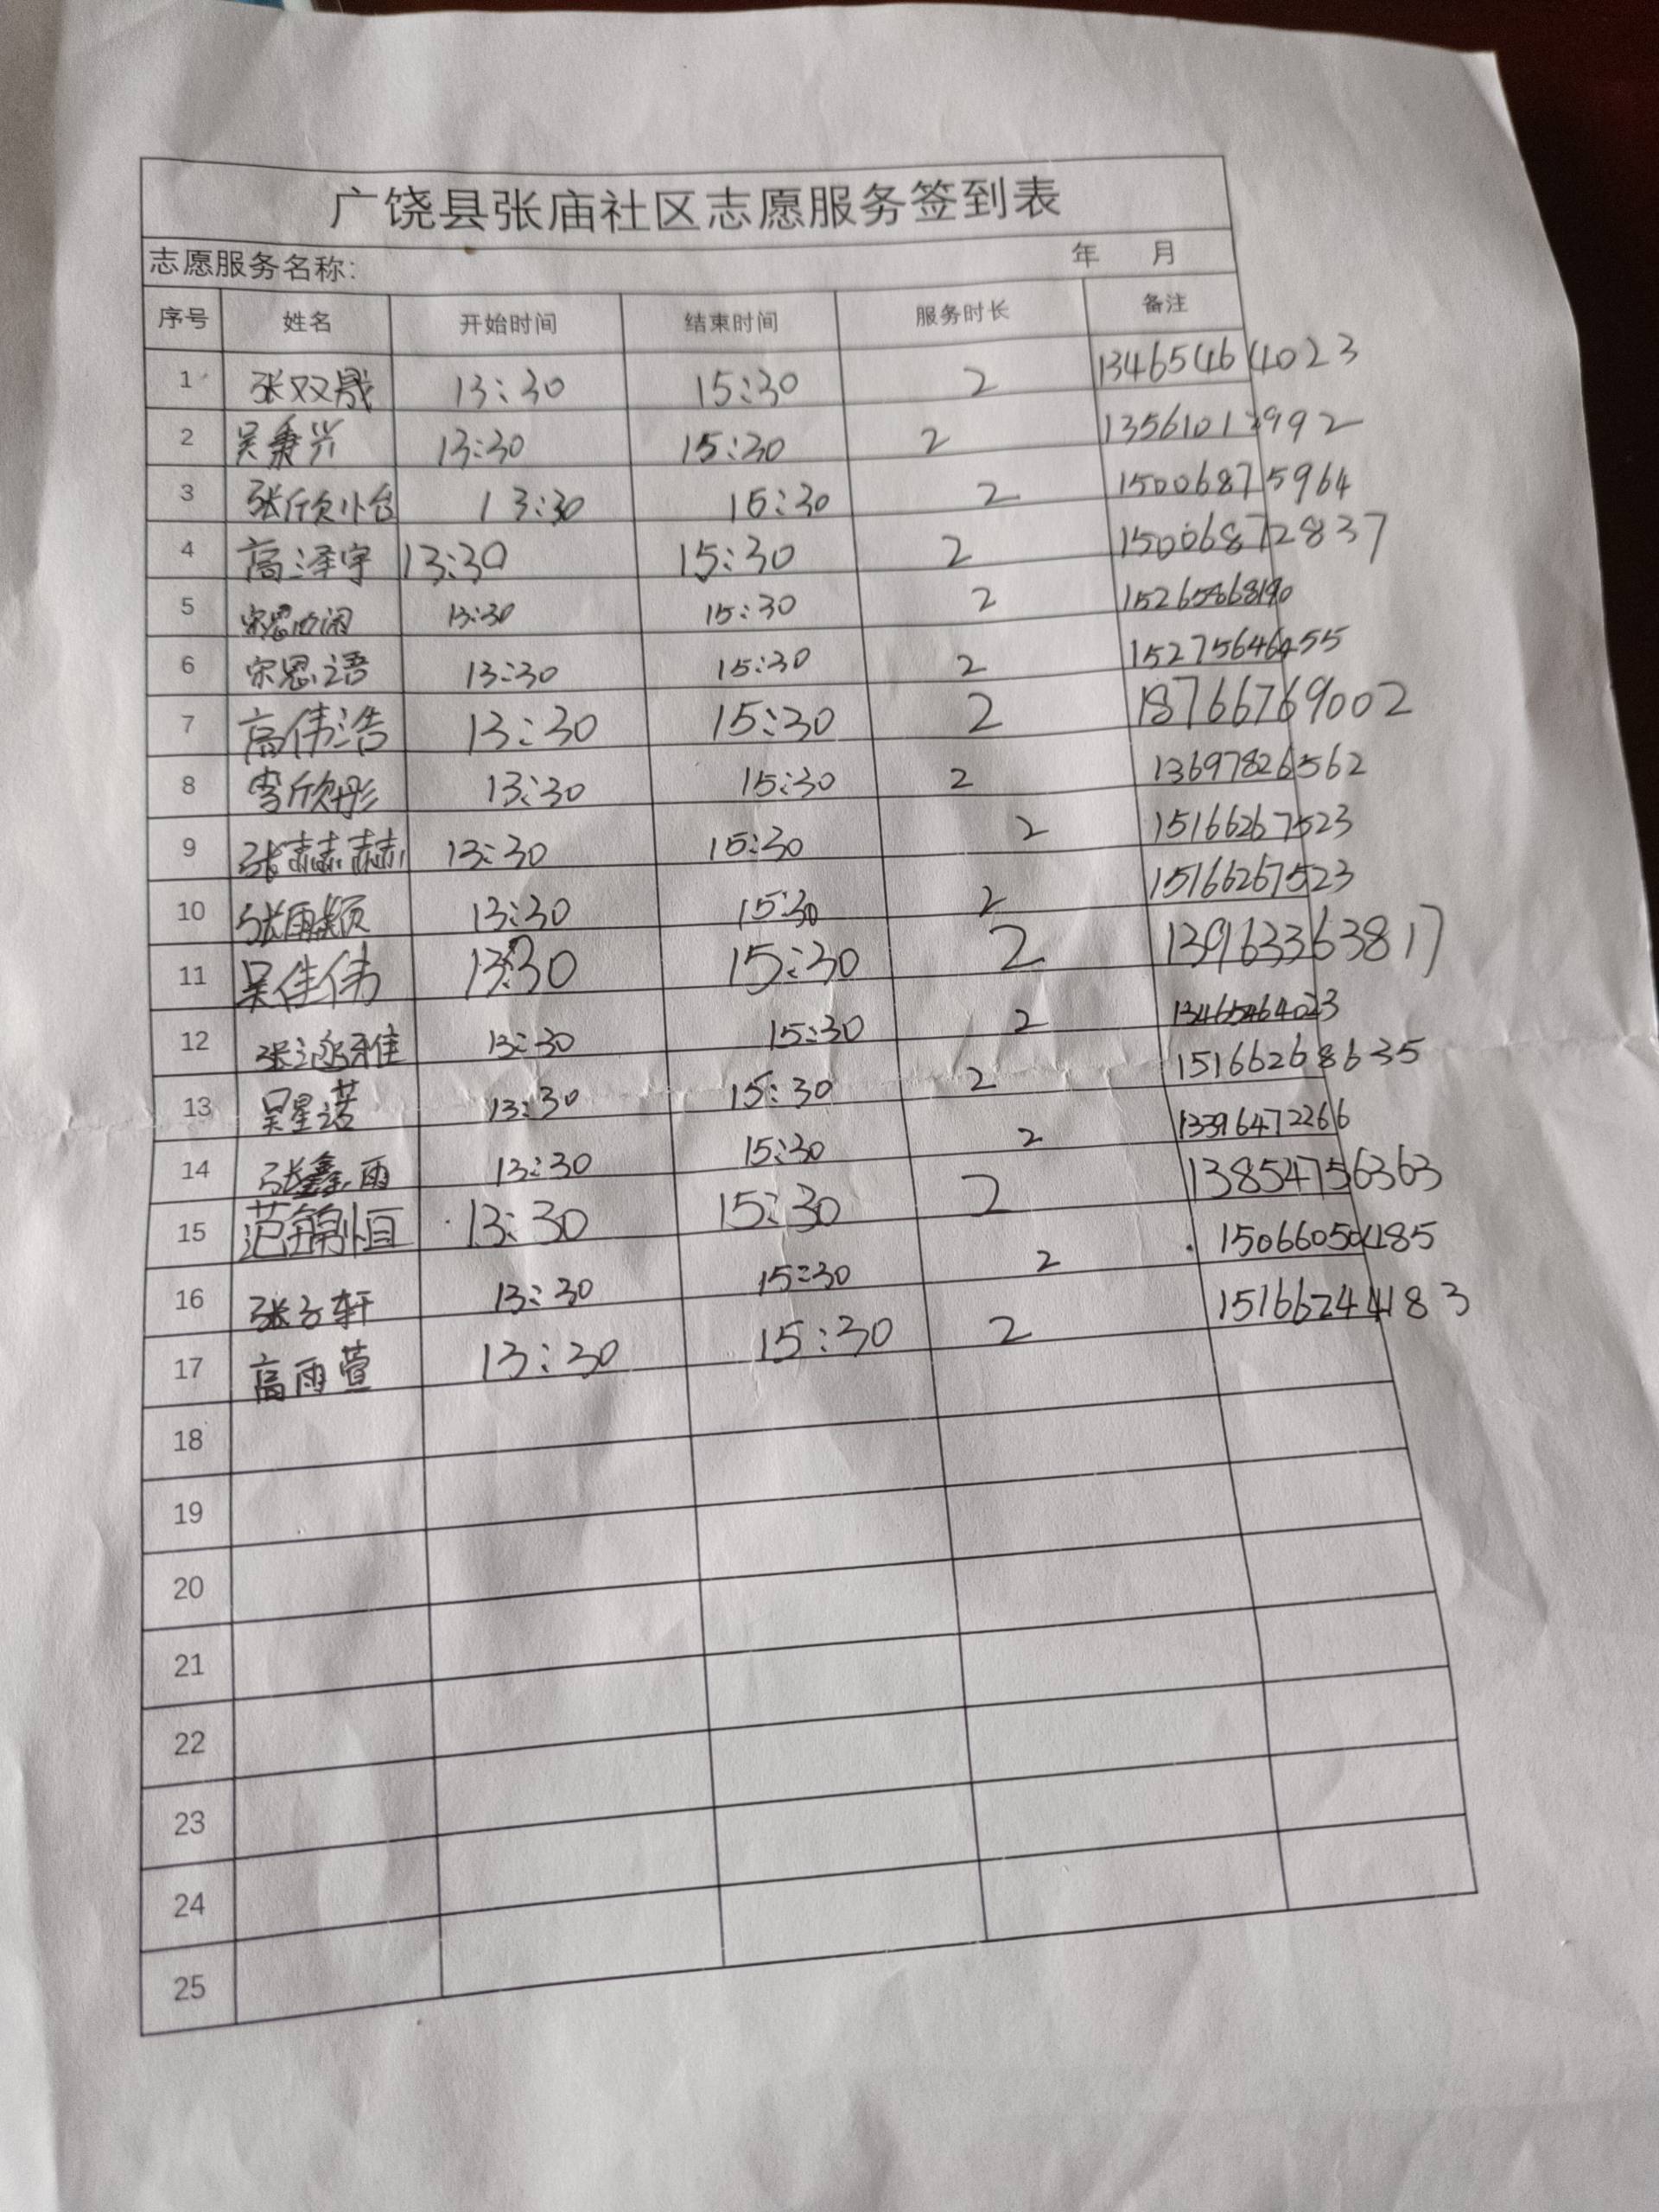 广饶县张庙社区志愿服务签到表
志愿服务名称: 年 月
序号 姓名 开始时间 结束时间 服务时长 备注
1 张双晟 13:30 15:30 2 13465464023
2 吴秉兴 13:30 15:30 2 13561013992
3 张欣怡 13:30 15:30 2 15006875964
4 高泽宇 13:30 15:30 2 15006872837
5 宋思 13:30 15:30 2 15265868190
6 宋恩语 13:30 15:30 2 15275646455
7 高伟浩 13:30 15:30 2 18766769002
8 李欣彤 13:30 15:30 2 13697826562
9 张赫赫 13:30 15:30 2 15166267523
10 张雨颖 13:30 15:30 2 15166267523
11 吴佳伟 13:30 15:30 2 13963363817
12 张涵雅 13:30 15:30 2 13465464023
13 吴星诺 13:30 15:30 2 15166268635
14 张鑫雨 13:30 15:30 2 13396472266
15 范锦恒 13:30 15:30 2 13854756363
16 张子轩 13:30 15:30 2 15066050485
17 高雨萱 13:30 15:30 2 15166244183
18
19
20
21
22
23
24
25